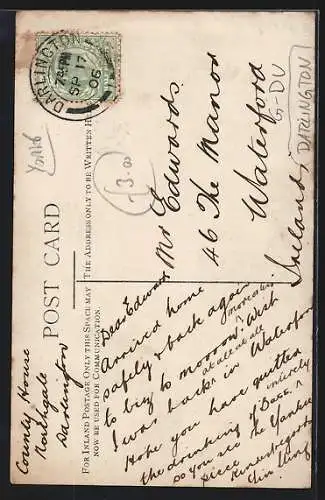 DARLINGTON
7.45 PM
SP 17
06
POST CARD
FOR INLAND POSTAGE ONLY THIS SPACE MAY
NOW BE USED FOR COMMUNICATION.
THE ADDRESS ONLY TO BE WRITTEN H
County House
Northgate
Darlington
Dear Edwards
Arrived home
safely & back again
to biz to morrow. Wish
I was back in Waterford
Hope you have quitten
the drinking & Bacc. entirely
so you see the Yankee
piece. Kind regards
Mr Edwards
46 The Manor
Waterford
Ireland
G-DU
DARLINGTON
3.00